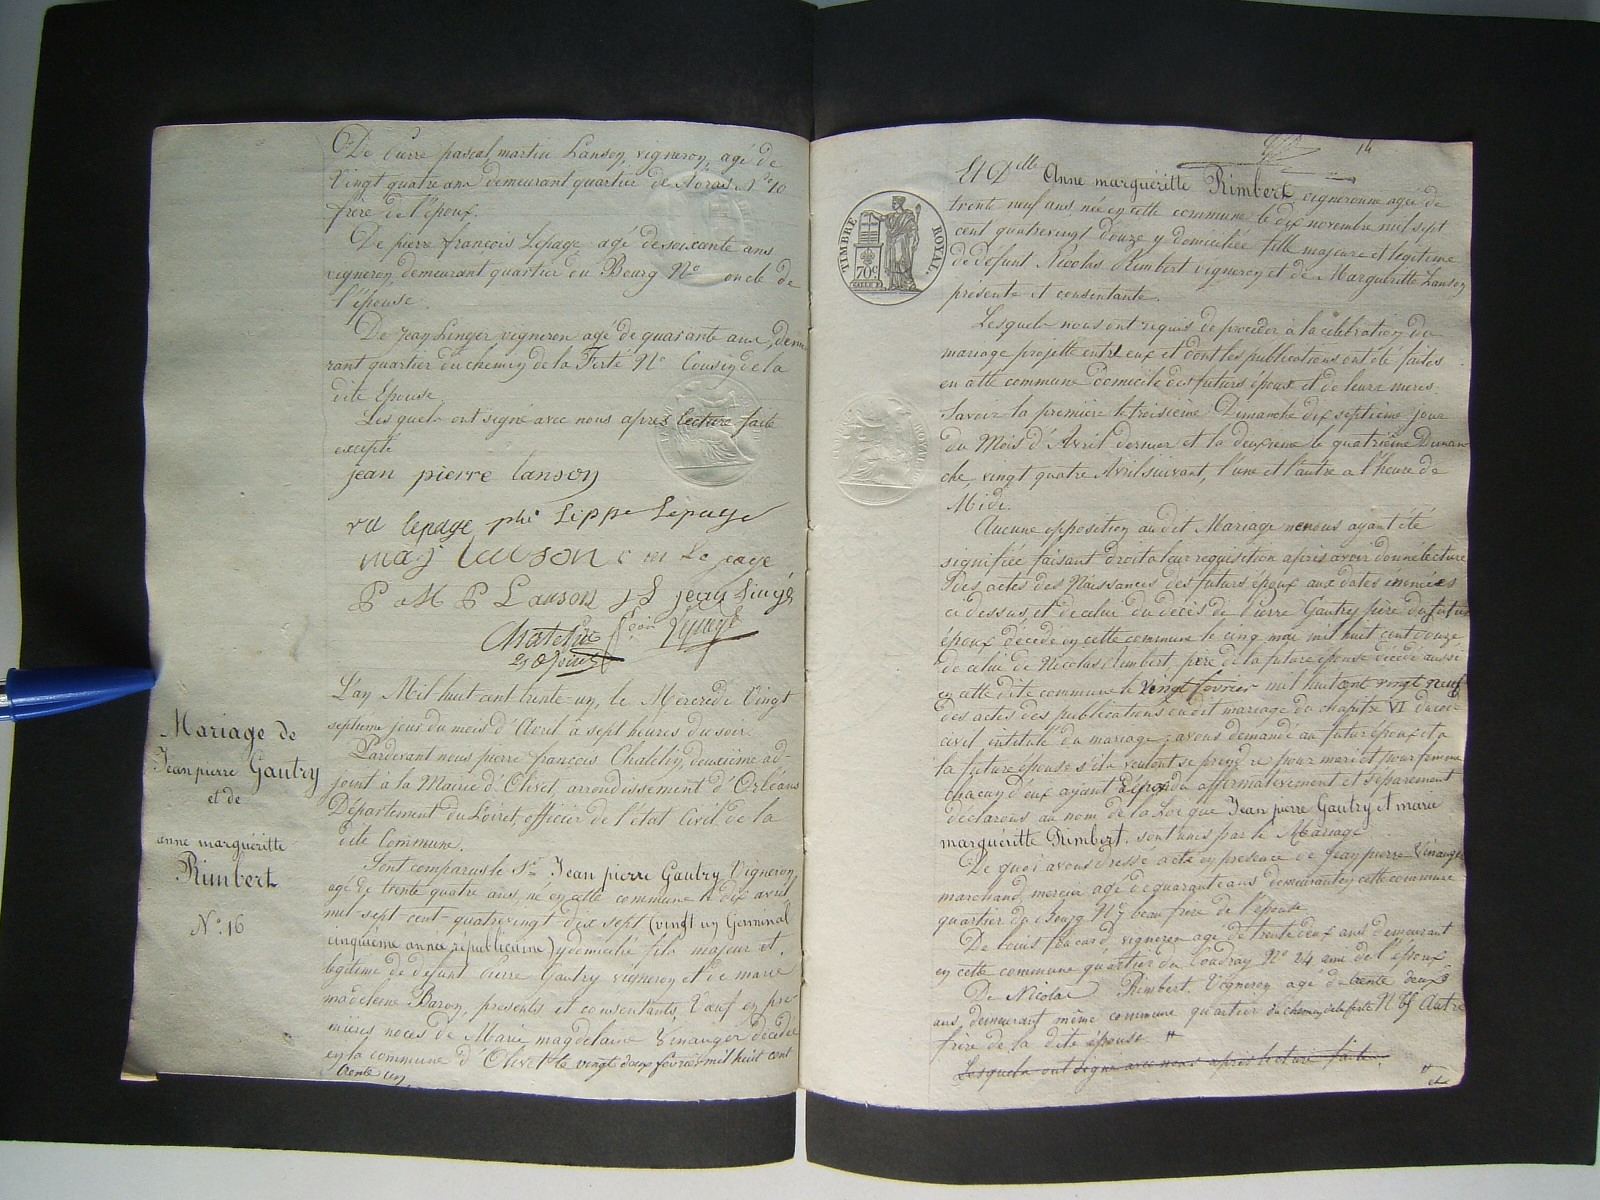 De Pierre pascal martin Lanson, vigneron, agé de
Vingt quatre ans demeurant quartier de Norais No. 10
frère de l'époux.
De pierre françois Lepage agé de soixante ans
vigneron demeurant quartier du Bourg No. oncle de
l'épouse.
De Jean Linger vigneron agé de quarante ans, demeu
rant quartier du chemin de la Ferté No. Cousin de la
dite Epouse.
Lesquels ont signé avec nous après lecture faite
excepté
jean pierre lanson
va lepage phi Lippe Lepage
maj lanson Lepage
P M P Lanson J L jean Lingé
Léon Lepage
Chatelin
adjoint
Mariage de
Jean pierre Gautry
et de
anne marguéritte
Rimbert
No. 16
L'an Mil huit cent trente-un, le Mercredi Vingt
septième jour du mois d'Avril à sept heures du soir.
Pardevant nous pierre françois Chatelin, deuxième ad-
joint à la Mairie d'Olivet, arrondissement d'Orléans
Département du Loiret, officier de l'état Civil de la
dite Commune.
Sont comparus le Sr. Jean pierre Gautry Vigneron,
agé de trente quatre ans, né en cette commune le dix avril
mil-sept-cent-quatrevingt dix sept (vingt un Germinal
cinquième année républicaine) y domicilié fils majeur et
légitime de défunt Pierre Gautry vigneron et de marie
madeleine Baron, présents et consentants, Veuf en pre-
mières noces de Marie magdelaine Vinanger décédée
en la commune d'Olivet le vingt deux février mil huit cent
trente un
14
Et Delle Anne marguéritte Rimbert vigneronne agée de
trente neuf ans, née en cette commune le dix novembre mil sept
cent quatrevingt douze y domiciliée fille majeure et légitime
de défunt Nicolas Rimbert vigneron et de Marguéritte Lanson
présente et consentante.
TIMBRE ROYAL.
70c
Lesquels nous ont requis de proceder à la célébration du
mariage projetté entre eux et dont les publications ont été faites
en cette commune domicile des futurs époux et de leurs meres.
Savoir la première le troisième Dimanche dix septième jour
du Mois d'Avril dernier et la deuxieme le quatrième Diman-
che, vingt quatre Avril suivant, l'une et l'autre a l'heure de
Midi.
Aucune opposition au dit Mariage ne nous ayant été
signifiée faisant droit a leur requisition après avoir donné lecture
Des actes des Naissances des futurs époux aux dates énoncées
ci dessus, et de celui du décès de Pierre Gautry père du futur
époux décédé en cette commune le cinq mai mil huit cent douze
de celui de Nicolas Rimbert, père de la future épouse décédé aussi
en cette dite commune le vingt fevrier mil huit cent vingt neuf
des actes des publications du dit mariage du chapitre VI du code
civil intitulé du mariage; avons demandé au futur époux et a
la future épouse s'ils veulent se prendre pour mari et pour femme
chacun d'eux ayant répondu affirmativement et séparément
déclarons au nom de la Loi que Jean pierre Gautry et marie
marguéritte Rimbert, sont unis par le Mariage
De quoi avons dressé acte en présence de Jean pierre Vinanger
marchand mercier agé de quarante ans demeurant en cette commune
quartier du Bourg No. 7 beau frere de l'épouse
De Louis foucard, vigneron agé de trente deux ans demeurant
en cette commune quartier du Coudray No. 24 ami de l'époux.
De Nicolas Rimbert. Vigneron agé de trente deux
ans, demeurant même commune quartier du chemin de la ferté No. Autre
frère de la dite épouse #
Lesquels ont signé avec nous après lecture faite.